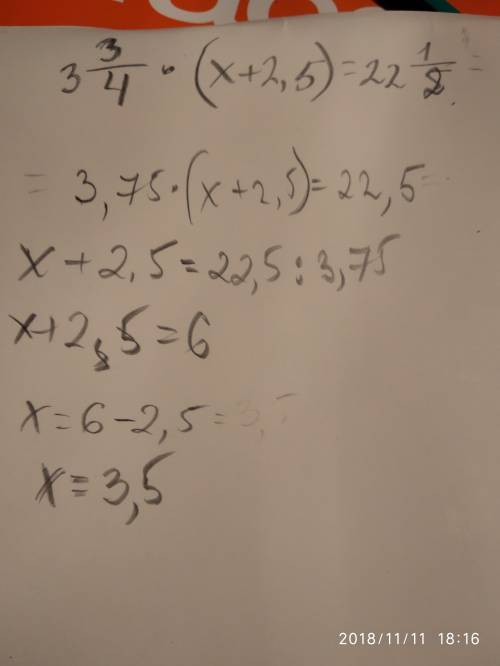 3 3/4 · (x+2,5)=22 1/2 =
= 3,75·(x+2,5)=22,5=
x+2,5=22,5:3,75
x+2,5=6
x=6-2,5=3,5
x=3,5
2018/11/11 18:16